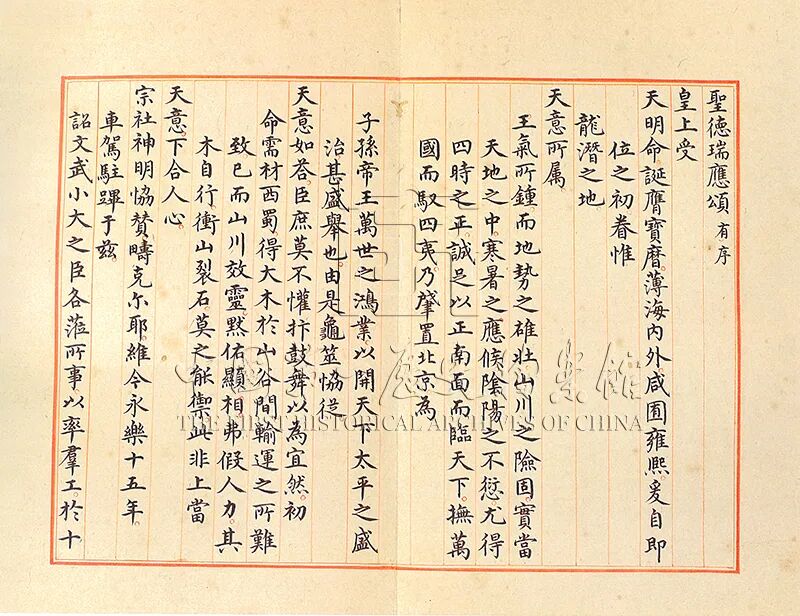 聖德瑞應頌 有序
皇上受
天明命誕膺寶曆薄海內外咸囿雍熙爰自即
位之初眷惟
龍潛之地
天意所属
王氣所鍾而地勢之雄壯山川之險固實當
天地之中寒暑之應候陰陽之不愆尤得
四時之正誠足以正南面而臨天下撫萬
國而馭四夷乃肇置北京為
子孫帝王萬世之鴻業以開天下太平之盛
治甚盛舉也由是龜筮恊從
天意如荅臣庶莫不懽抃鼓舞以為宜然初
命需材西蜀得大木於山谷間輸運之所難
致已而山川效靈黙佑顯相弗假人力其
木自行衝山裂石莫之能禦此非上當
天意下合人心
宗社神明恊贊疇克尔耶維今永樂十五年
車駕駐蹕于兹
詔文武小大之臣各蒞所事以率羣工於十
中國第一歷史檔案館
THE FIRST HISTORICAL ARCHIVES OF CHINA